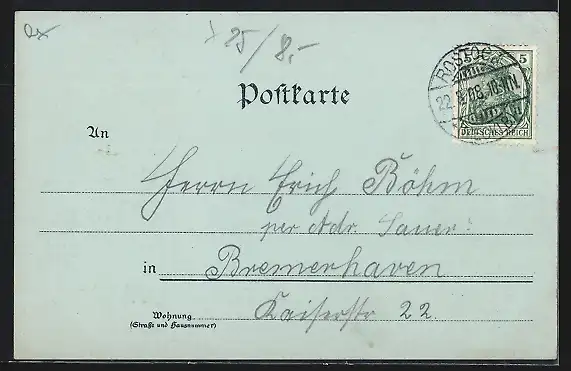 25/8,-
ROSTOCK
22. 08. 10-11N.
5
DEUTSCHES REICH
Postkarte
An
Herrn Erich Böhm
per Adr. Sauer.
in Bremerhaven
Kaiserstr 22.
Wohnung
(Straße und Hausnummer)